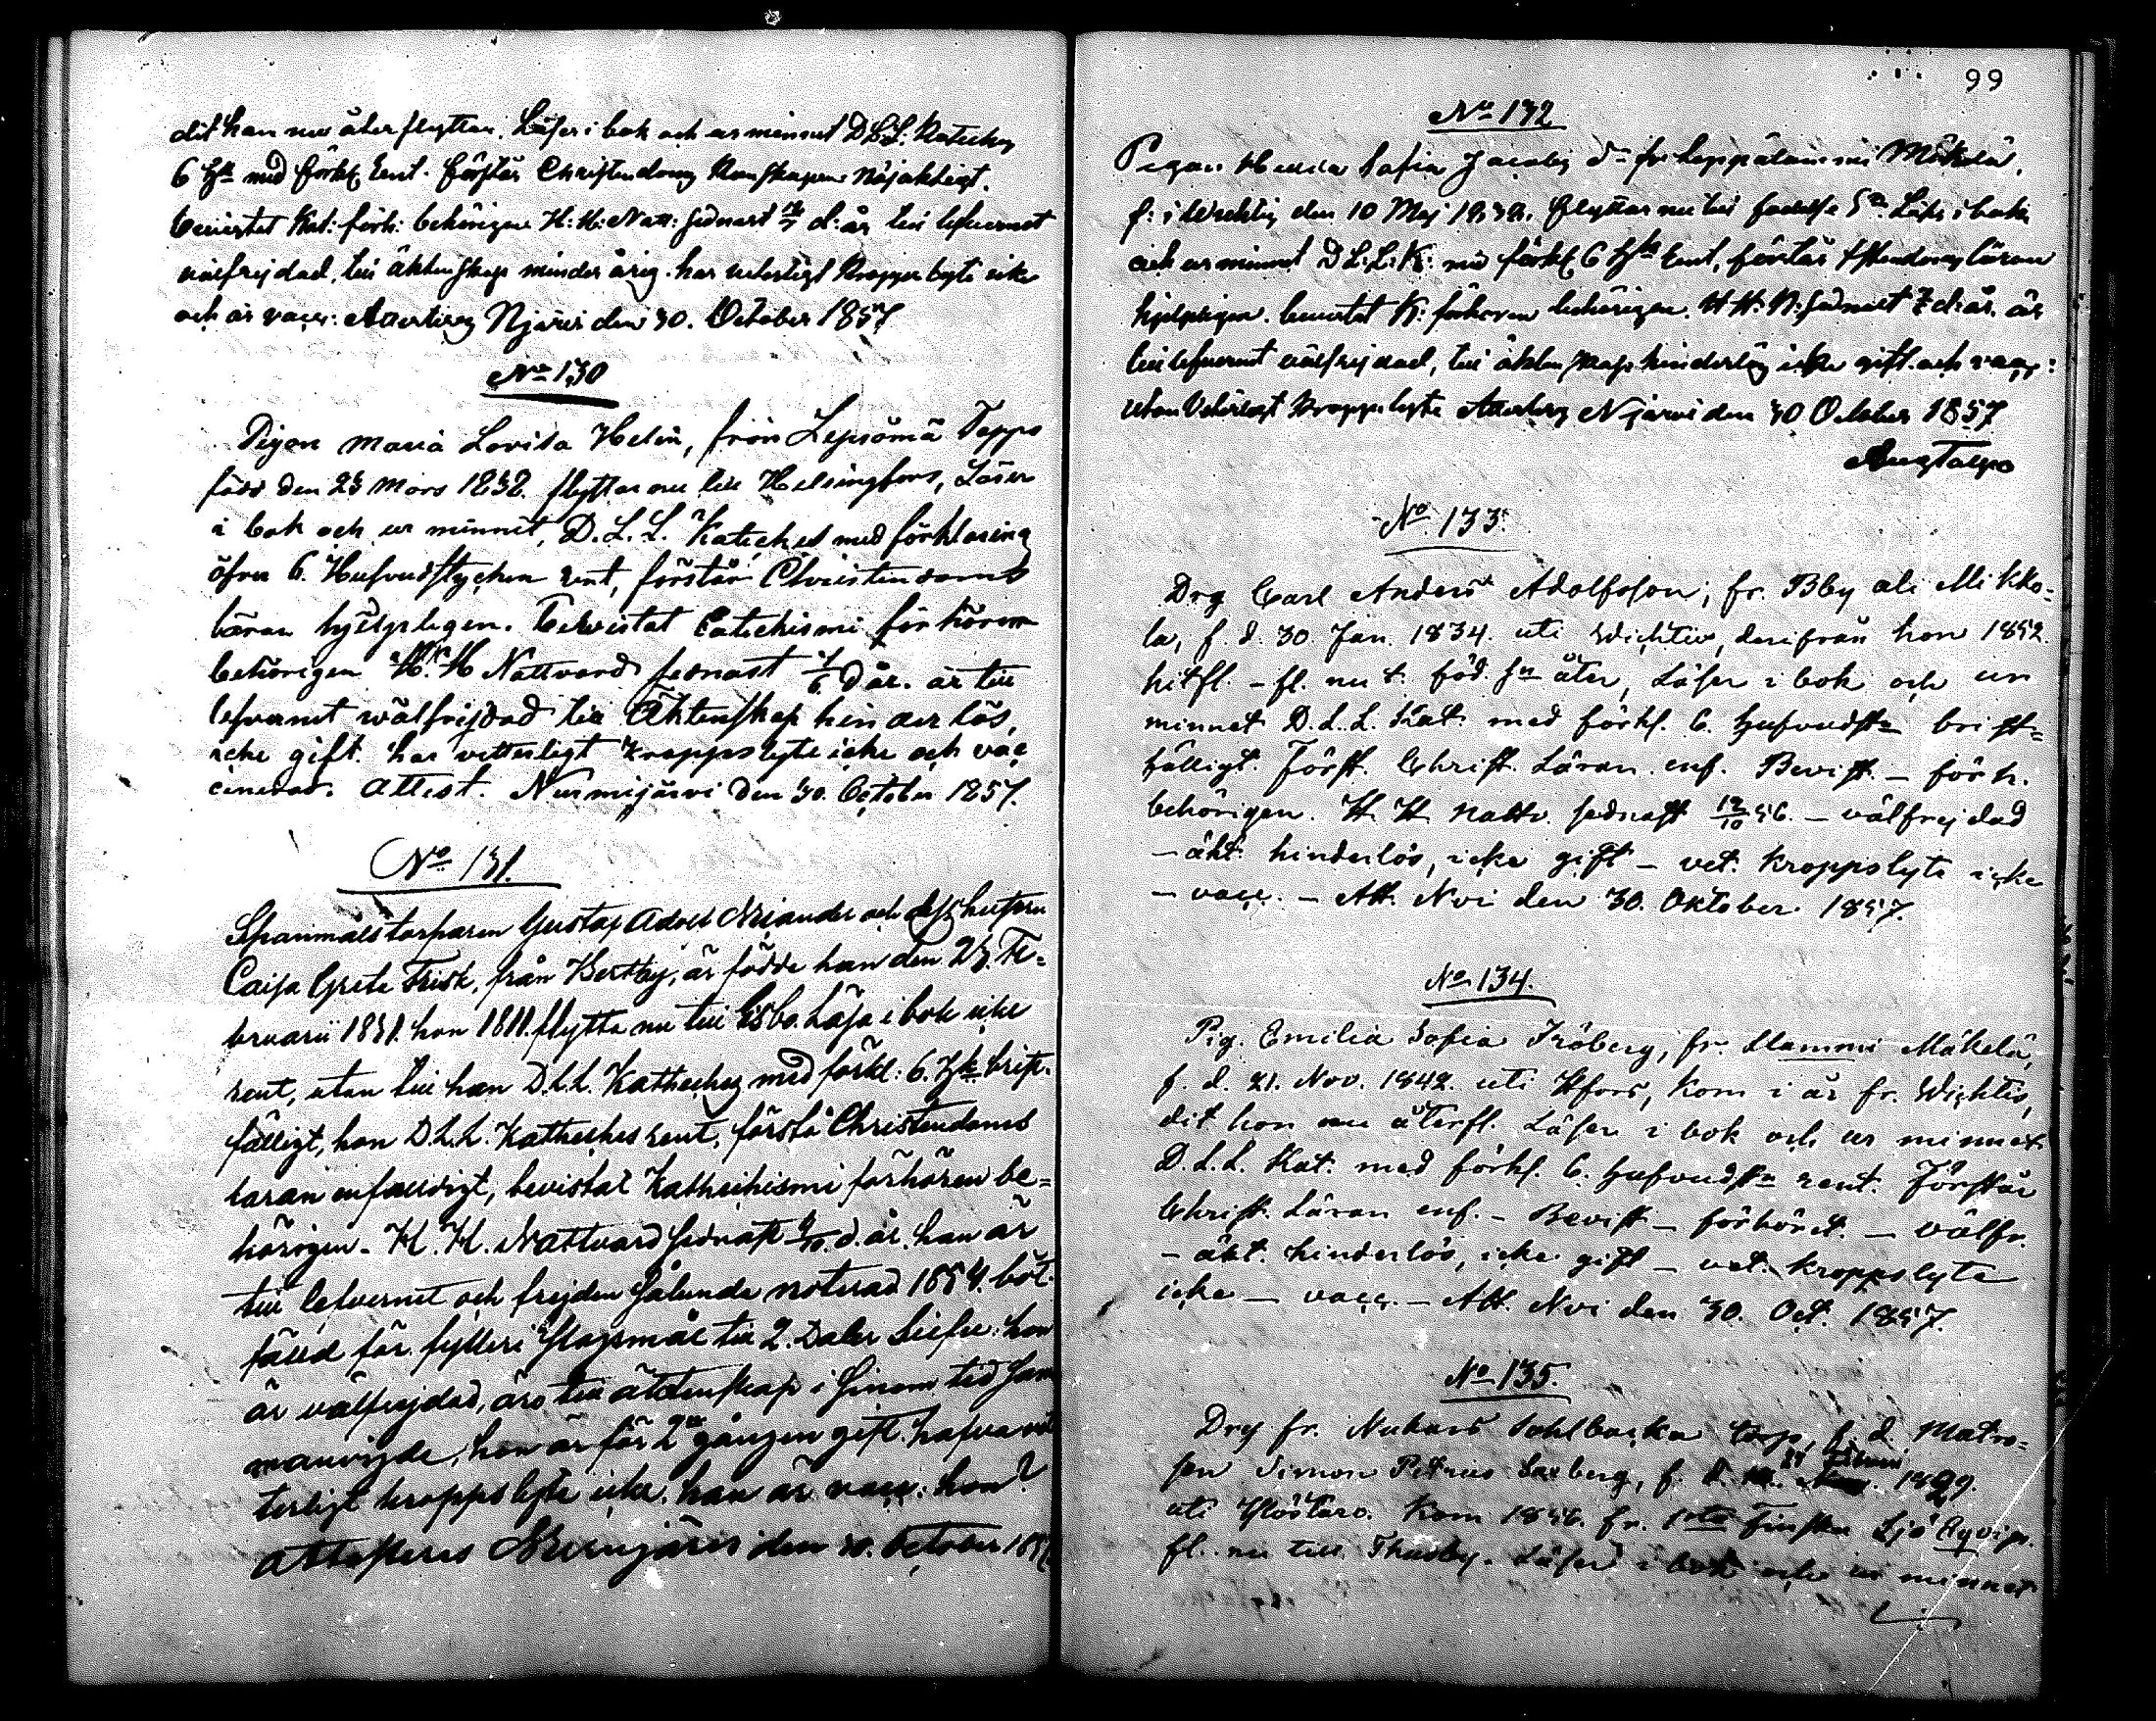 dit han nu återflyttar. Läser i bok och ur minnet D.L.L. Kateches
6 H:st med förkl. rent. Förstår Christendoms Kunskapen nöjaktigt.
bevistat Kat: förh: behörigen H: H: Natt: sednast d: år till lefvernet
välfrejdad, till äktenskap minderårig. har veterligt Kroppslyte icke
och är vacc: Attesteras Njärvi den 30. October 1857
No 130
Pigan Maria Lovisa Helin, från Lepsömä Tepps
född den 23 Mars 1838. flyttar nu till Helsingfors, Läser
i bok och ur minnet, D. L. L. Kateches med förklaring
öfver 6. Hufvudstycken rent, förstår Christendoms
läran hjelpligen. Bewistat Catechismi förhören
behörigen H. H Nattvard sednast 7/6 d år. är till
lefvernet wälfrejdad till Äktenskap hinderlös,
icke gift. har vetterligt kroppslyte icke och vac
cinerad. Attest. Nurmijärvi den 30. October 1857.
No 131.
Spanmålstorparen Gustaf Adolf Niander och dess hustru
Caisa Greta Frisk, från Kertby, är födde han den 23. Fe=
bruarii 1831. hon 1811. flytta nu till Esbo. Läsa i bok icke
rent, utan till han D.L.L. Katheches med förkl: 6. H:st brist=
fälligt, hon D.L.L. Katheches rent, förstå Christendoms
läran enfaldigt, bevistat Kathechismi förhören be=
hörigen. H. H. Nattvard sednast 4/10. d. år. han är
till lefvernet och frejden sålunda noterad 1854. böt=
fälld för fylleri slagsmål till 2. Daler Silfver: hon
är välfrejdad, äro till äktenskap i sinom tid sam
manvigde, hon är för 2:a gången gift. hafva vet
terligt kroppslyte icke. han är vacc: hon?
attesteras Nurmijärvi den 30. October 1857.
99
No 132
Pigan Sofia Jacobs d:r fr Leppälammi Mäkelä.
f: i Wichtis den 10 Maj 1839. flyttar nu till födelse S:n. Läser i bok
och ur minnet D.L:L:K: med förkl 6 H:st rent, förstår Xstendoms läran
hjelpligen. bevistat K: förhören behörigen. H H: N: sednast d: år. är
till lefvernet välfrejdad, till äktenskap hinderlös icke gift och vacc:
utan Veterligt Kroppslyte Attesteras Njärvi den 30 October 1857
No 133.
Drg Carl Anders Adolfsson, fr. Bby ali Mikko=
la, f. d. 30. Jan. 1834. uti Wichtis, derifrån han 1852.
hitfl. - fl. nu t. föd. s:n åter, Läser i bok och ur
minnet D.L.L. Kat. med förkl. 6. Hufvudst:n brist=
fälligt. Först. Christ. Läran enf. Bevist. - förh.
behörigen. H. H. Nattv. sednast 12/10 56. - välfrejdad
- äkt. hinderlös, icke gift - vet. kroppslyte icke
- vacc. - Att. Nvi den 30. Oktober 1857.
No 134.
Pig. Emilia Sofia Fröberg, fr. Mäkelä,
f. d. 21. Nov. 1842. uti Hfors, kom i år fr. Wichtis,
dit hon nu återfl. Läser i bok och ur minnet
D.L.L. Kat. med förkl. 6. Hufvudst:n rent. Förstår
Christ. Läran enf. - Bevist - förhöret. - välfr.
- äkt. hinderlös, icke gift - vet. kroppslyte
icke - vacc. - Att. Nvi den 30. Oct. 1857.
No 135.
Drg fr. Nukars torp, f. d. Matro=
sen Simon Petrus f. d. 1829.
uti Kom 1856. fr. 1:sta Finska Sjö Eqvip.
fl. nu till Thusby. Läser i bok och ur minnet